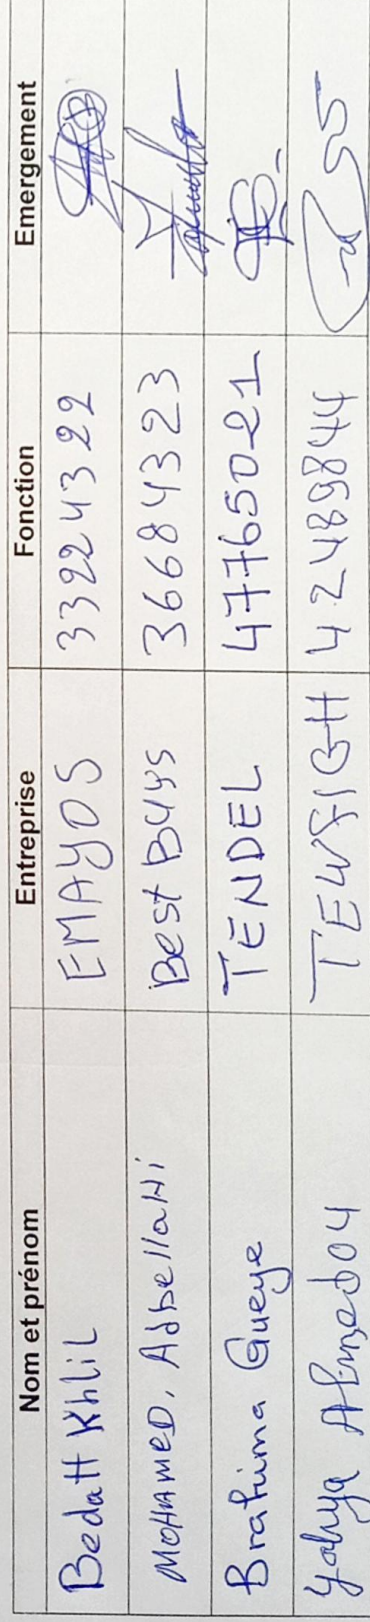 Nom et prénom Entreprise Fonction Emergement
Bedatt Khlil EMAYOS 33224322
MOHAMED. Abdellahi Best Buys 36684323
Brahima Gueye TENDEL 47765021
Yahya Ahmedou TEWFIGH 42489844